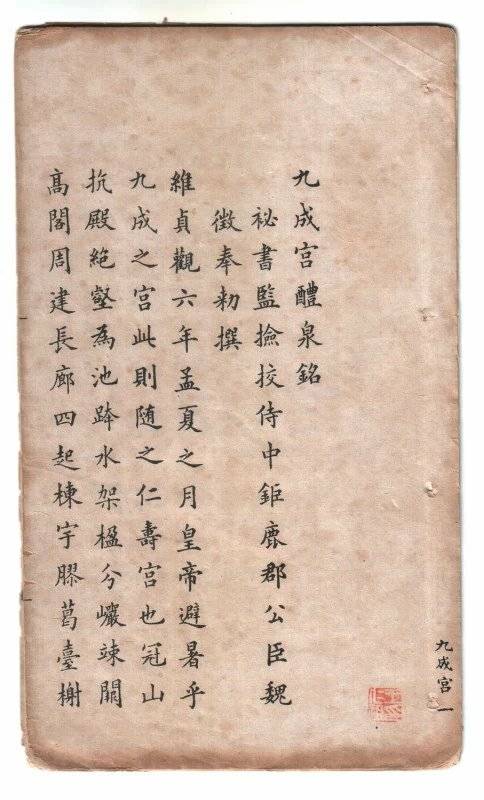 九成宮醴泉銘
祕書監撿挍侍中鉅鹿郡公臣魏
徵奉勑撰
維貞觀六年孟夏之月皇帝避暑乎
九成之宮此則随之仁壽宮也冠山
抗殿絶壑為池跨水架楹分巖竦闕
高閣周建長廊四起棟宇膠葛臺榭
九成宮 一